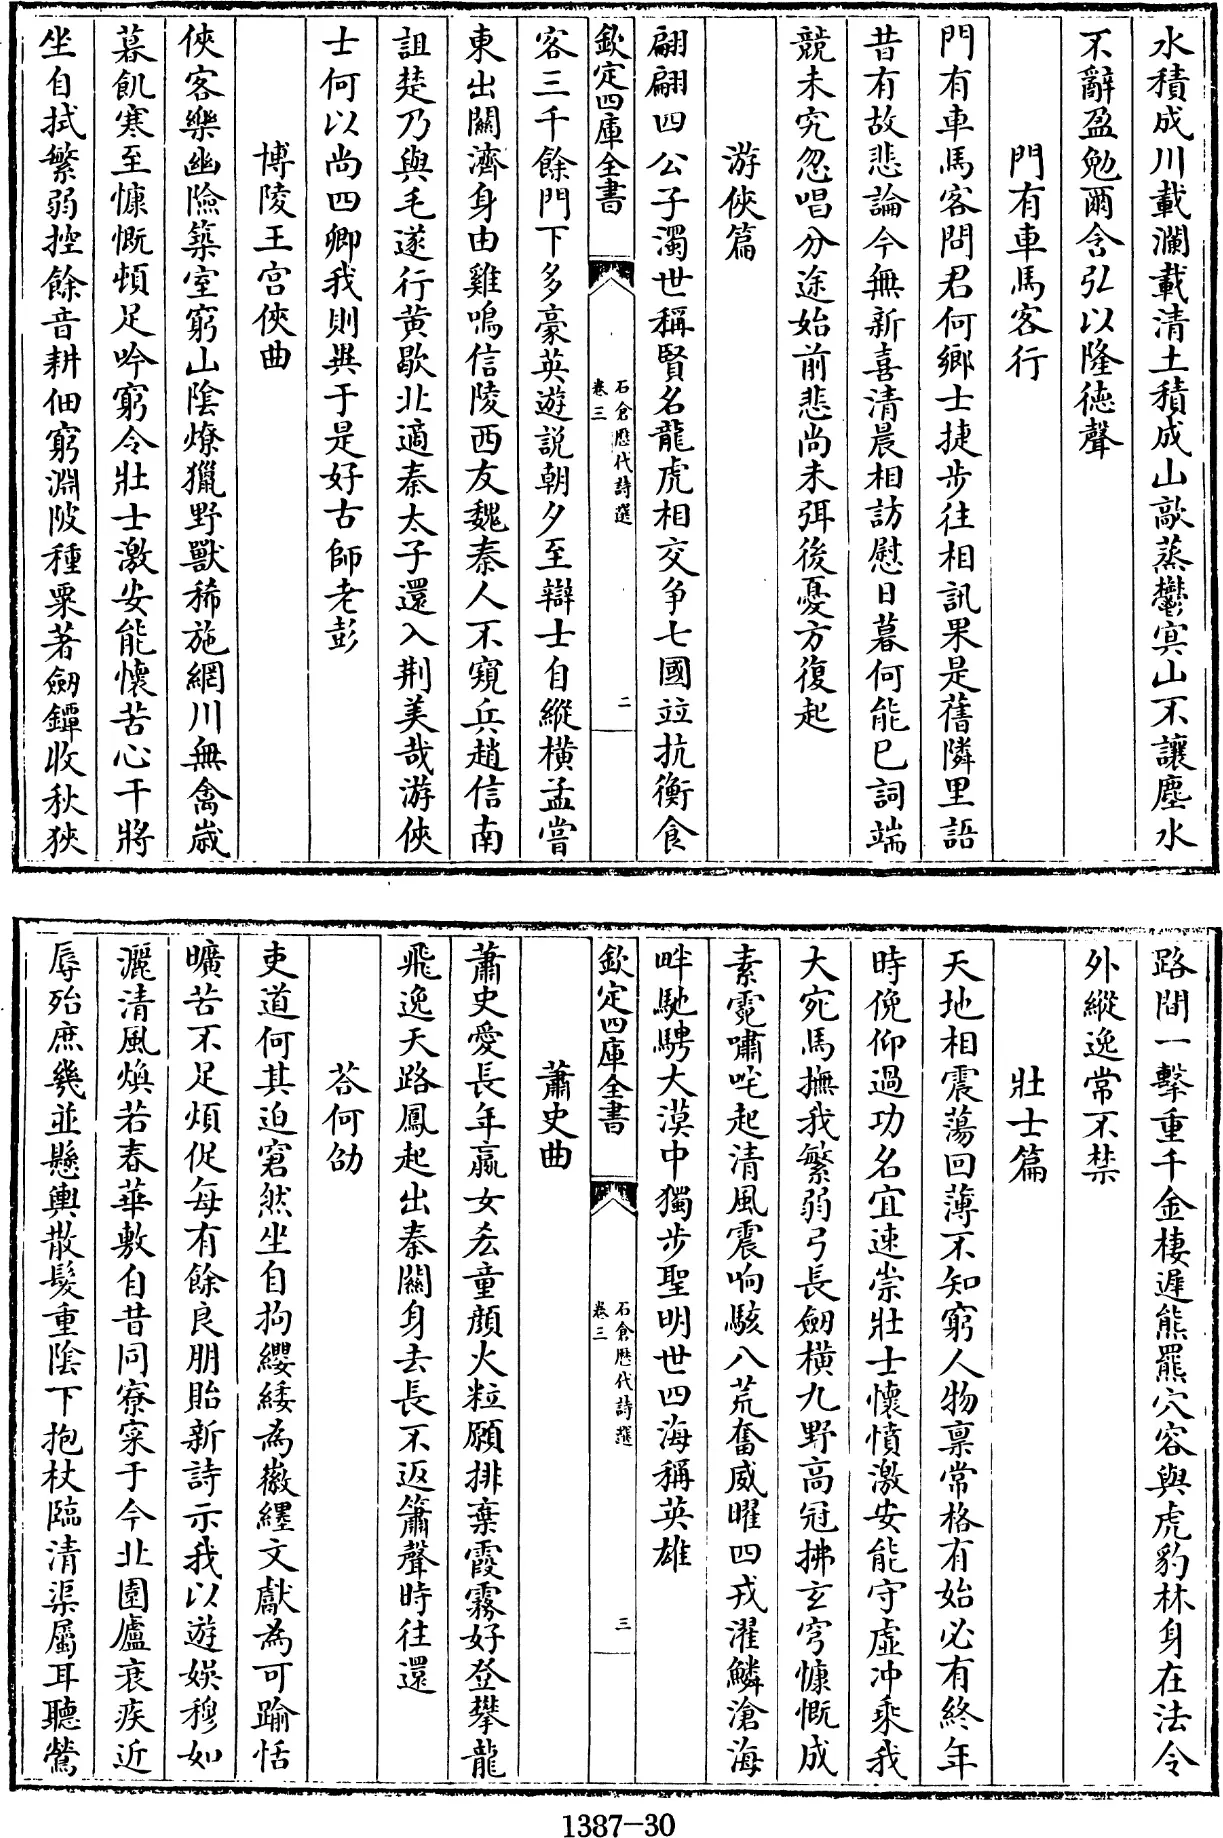 水積成川載瀾載清土積成山歊蒸鬱㝠山不讓塵水
不辭盈勉爾含弘以隆徳聲
門有車馬客行
門有車馬客問君何鄉士捷步往相訊果是舊隣里語
昔有故悲論今無新喜清晨相訪慰日暮何能已詞端
競未究忽唱分途始前悲尚未弭後憂方復起
游俠篇
翩翩四公子濁世稱賢名龍虎相交爭七國竝抗衡食
欽定四庫全書
石倉歷代詩選
卷三
二
客三千餘門下多豪英遊說朝夕至辯士自縱橫孟嘗
東出關濟身由雞鳴信陵西友魏秦人不窺兵趙信南
詛楚乃與毛遂行黄歇北適秦太子還入荆美哉游俠
士何以尚四卿我則異于是好古師老彭
博陵王宫俠曲
俠客樂幽險築室窮山陰燎獵野獸稀施網川無禽嵗
暮飢寒至慷慨頓足吟窮令壯士激安能懷苦心干將
坐自拭繁弱控餘音耕佃窮淵陂種粟著劔鐔收秋狹
路間一擊重千金棲遲熊羆穴容與虎豹林身在法令
外縱逸常不禁
壯士篇
天地相震蕩回薄不知窮人物禀常格有始必有終年
時俛仰過功名宜速崇壯士懷憤激安能守虚冲乘我
大宛馬撫我繁弱弓長劔橫九野高冠拂玄穹慷慨成
素霓嘯咤起清風震响駭八荒奮威曜四戎濯鱗滄海
畔馳騁大漠中獨步聖明世四海稱英雄
欽定四庫全書
石倉歷代詩選
卷三
三
蕭史曲
蕭史愛長年嬴女𠫤童顔火粒願排棄霞霧好登攀龍
飛逸天路鳳起出秦關身去長不返簫聲時往還
荅何劭
吏道何其迫窘然坐自拘纓緌為徽纆文獻為可踰恬
曠苦不足煩促每有餘良朋貽新詩示我以遊娱穆如
灑清風煥若春華敷自昔同寮寀于今北園廬衰疾近
辱殆庶幾並懸輿散髮重陰下抱杖臨清渠屬耳聽鶯
1387-30